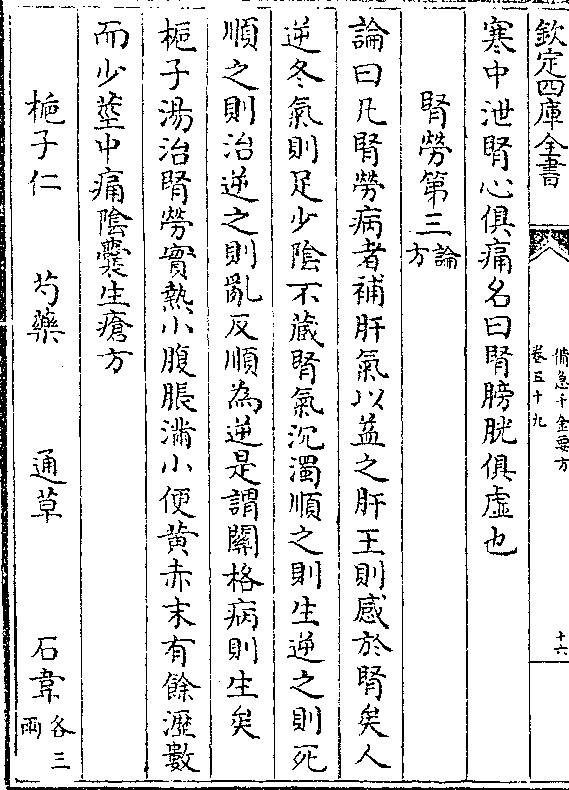 欽定四庫全書
備急千金要方
卷五十九
十六
寒中泄腎心俱痛名曰腎膀胱俱虛也
腎勞第三
論
方
論曰凡腎勞病者補肝氣以益之肝王則感於腎矣人
逆冬氣則足少陰不藏腎氣沉濁順之則生逆之則死
順之則治逆之則亂反順為逆是謂關格病則生矣
梔子湯治腎勞實熱小腹脹滿小便黄赤末有餘瀝數
而少莖中痛陰囊生瘡方
梔子仁 芍藥 通草 石韋各三兩